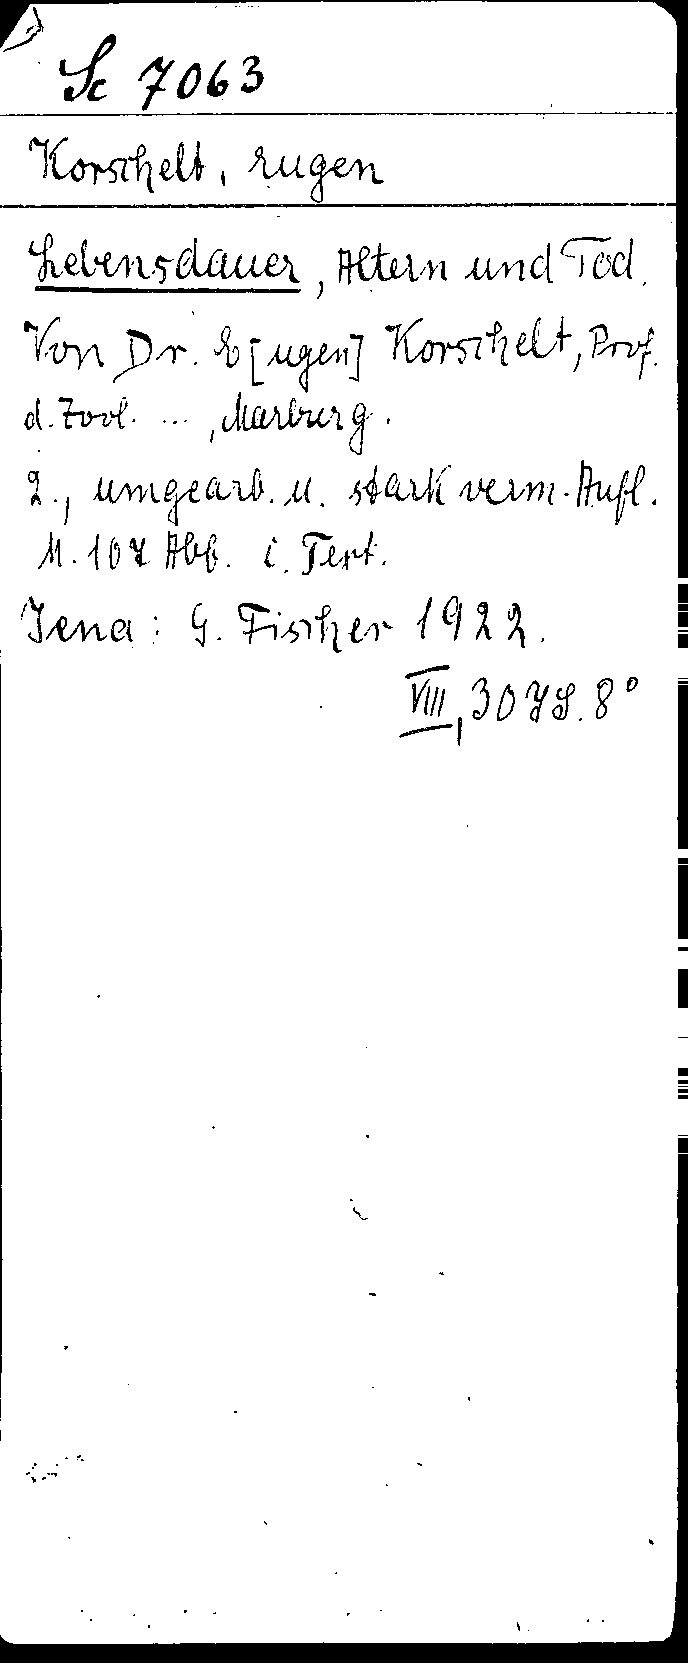 Sc 7063
Korschelt, Eugen
Lebensdauer, Altern und Tod.
Von Dr. E[ugen] Korschelt, Prof.
d. Zool. ..., Marburg.
2., umgearb. u. stark verm. Aufl.
M. 107 Abb. i. Text.
Jena: G. Fischer 1922.
VIII, 307 S. 8°